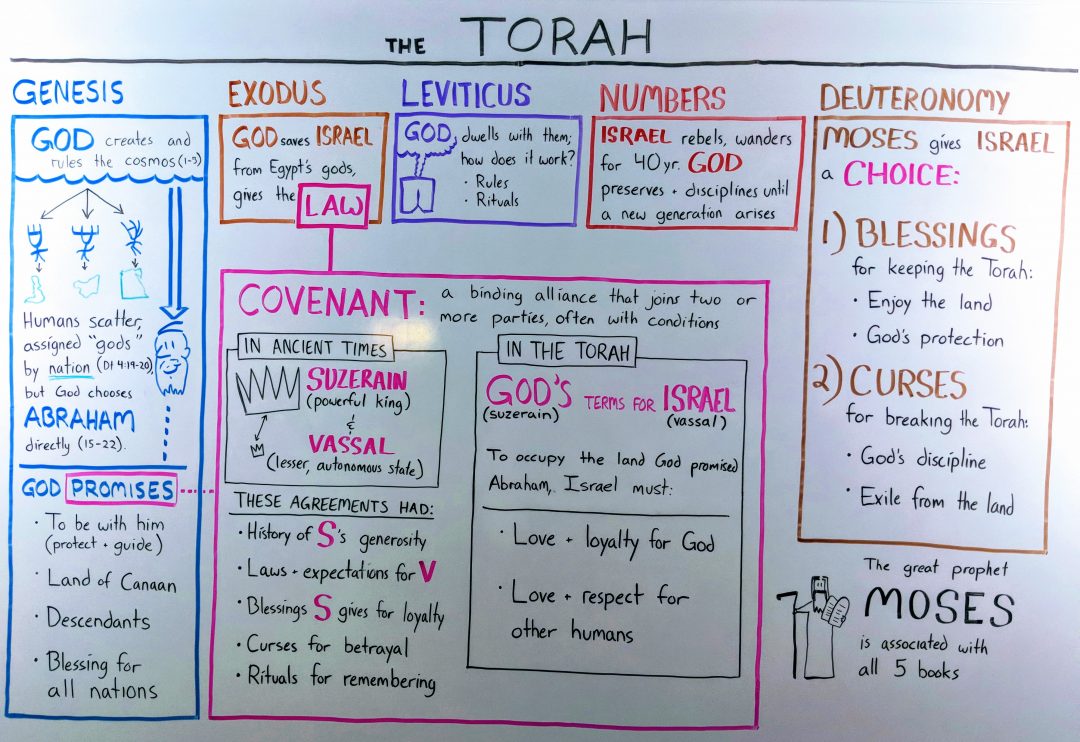 THE TORAH
GENESIS
GOD creates and
rules the cosmos (1-3)
Humans scatter,
assigned "gods"
by nation (Dt 4:19-20),
but God chooses
ABRAHAM
directly (15-22).
GOD PROMISES
· To be with him
(protect + guide)
· Land of Canaan
· Descendants
· Blessing for
all nations
EXODUS
GOD saves ISRAEL
from Egypt's gods,
gives the LAW
LEVITICUS
GOD dwells with them;
how does it work?
· Rules
· Rituals
NUMBERS
ISRAEL rebels, wanders
for 40 yr. GOD
preserves + disciplines until
a new generation arises
COVENANT: a binding alliance that joins two or
more parties, often with conditions
IN ANCIENT TIMES
SUZERAIN
(powerful king)
&
VASSAL
(lesser, autonomous state)
THESE AGREEMENTS HAD:
· History of S's generosity
· Laws + expectations for V
· Blessings S gives for loyalty
· Curses for betrayal
· Rituals for remembering
IN THE TORAH
GOD'S TERMS FOR ISRAEL
(suzerain) (vassal)
To occupy the land God promised
Abraham, Israel must:
· Love + loyalty for God
· Love + respect for
other humans
DEUTERONOMY
MOSES gives ISRAEL
a CHOICE:
1) BLESSINGS
for keeping the Torah:
· Enjoy the land
· God's protection
2) CURSES
for breaking the Torah:
· God's discipline
· Exile from the land
The great prophet
MOSES
is associated with
all 5 books